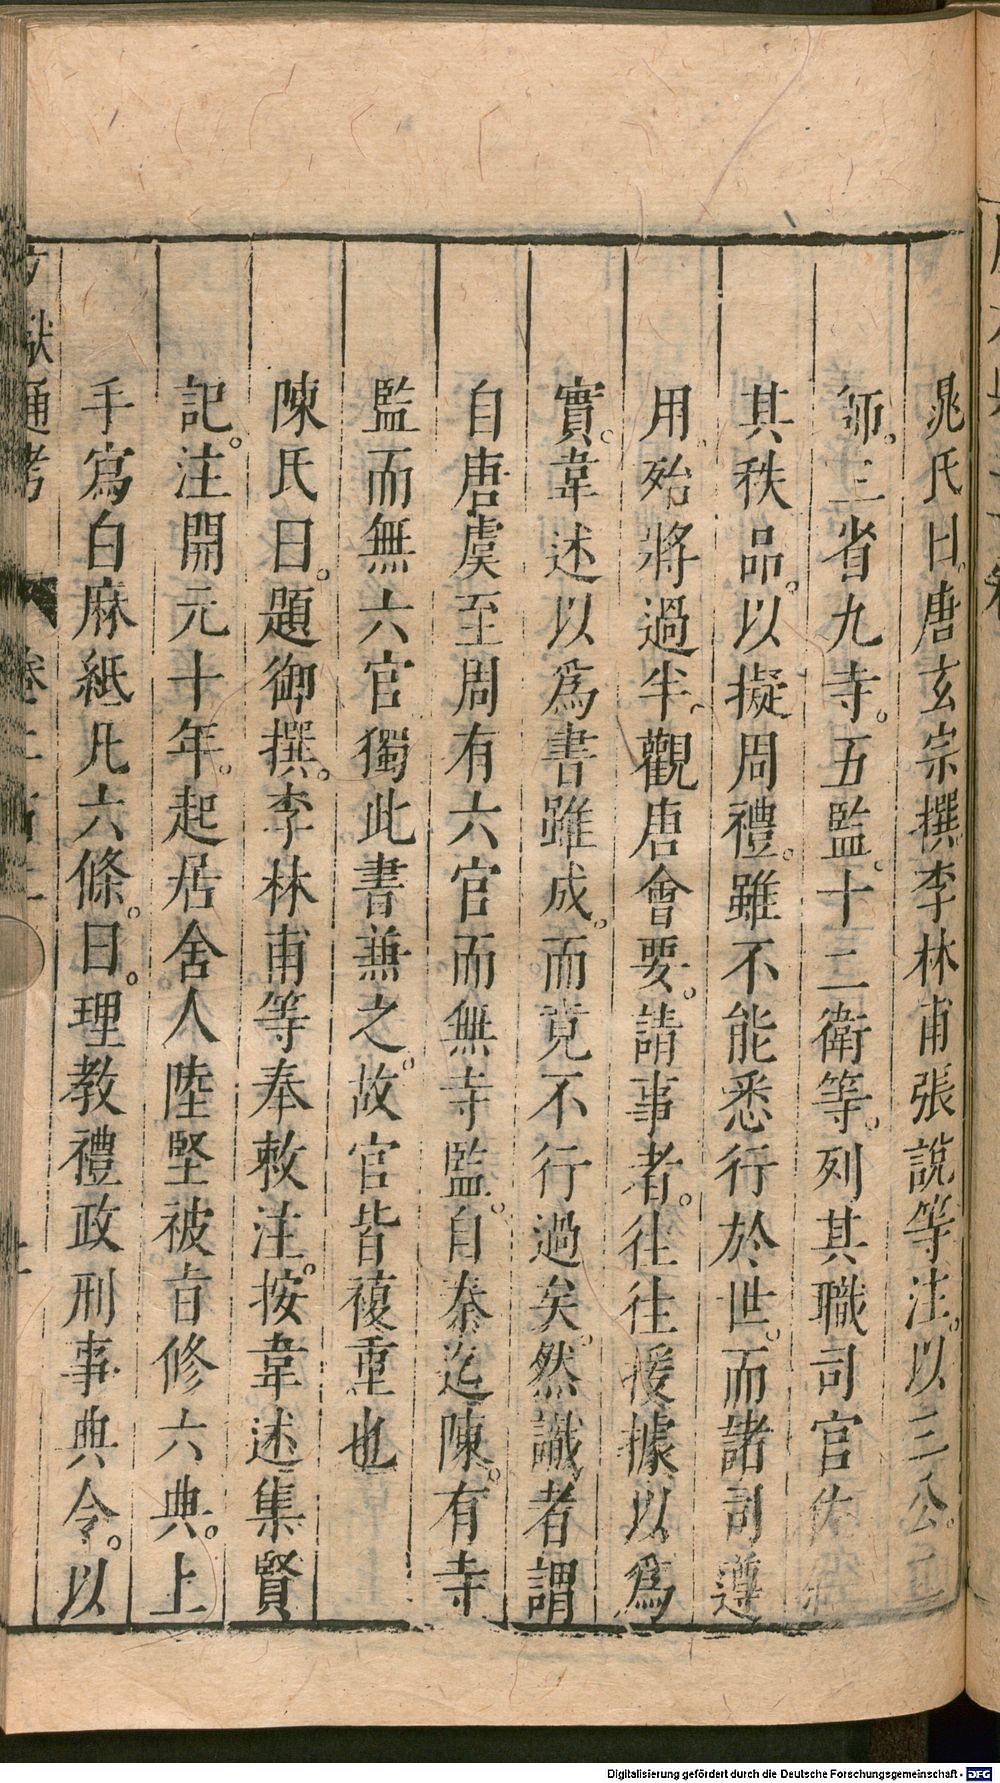 晁氏曰。唐玄宗撰李林甫張說等注。以三公三
師。三省九寺。五監。十二衛等。列其職司官佐
其秩品。以擬周禮。雖不能悉行於世。而諸司遵
用。殆將過半。觀唐會要。請事者。往往援據以爲
實。韋述以爲書雖成。而竟不行過矣。然識者謂
自唐虞至周有六官而無寺監。自秦迄陳。有寺
監而無六官獨此書兼之。故官皆複重也
陳氏曰。題御撰。李林甫等奉敕注。按韋述集賢
記。注開元十年。起居舍人陸堅被旨修六典。上
手寫白麻紙凡六條。曰。理教禮政刑事典令。以
文獻通考 卷二百二
Digitalisierung gefördert durch die Deutsche Forschungsgemeinschaft - DFG